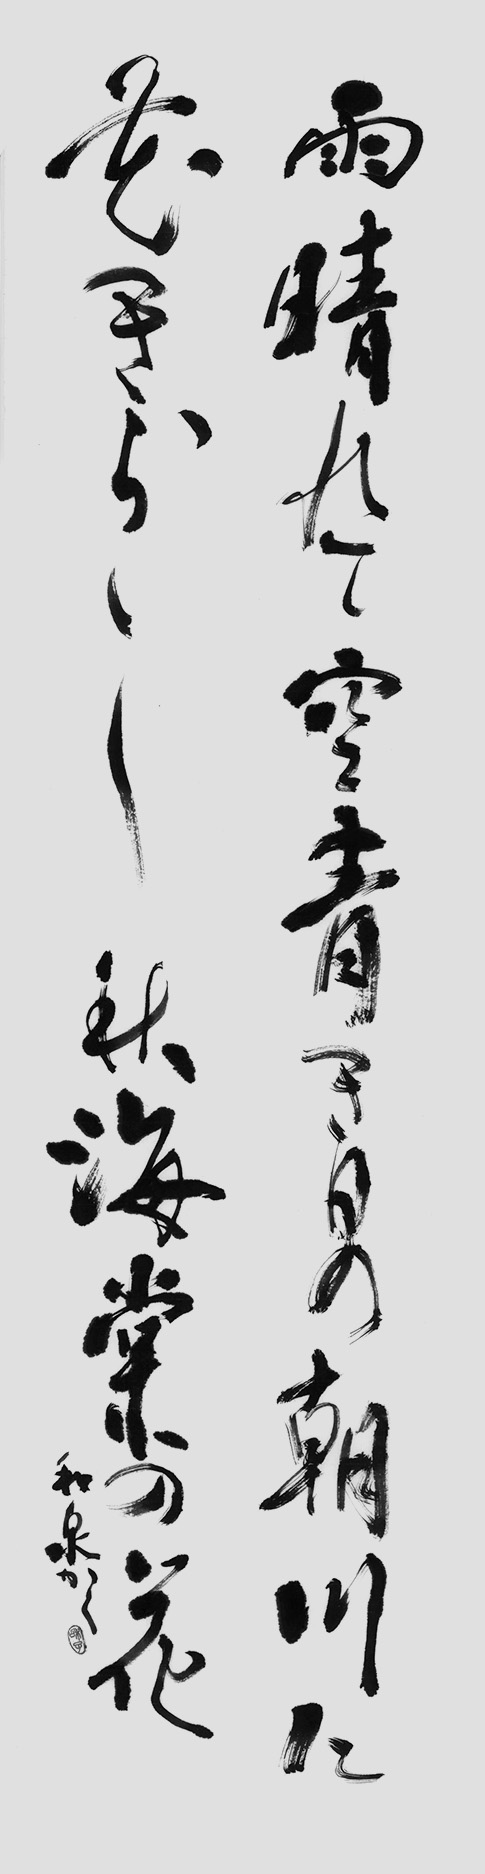 雨晴れて空青き日の朝川に
秋海棠の花
和泉かく